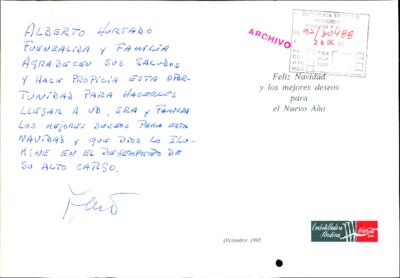 ALBERTO HURTADO
FUENZALIDA Y FAMILIA
AGRADECEN SUS SALUDOS
Y HACE PROPICIA ESTA OPOR-
TUNIDAD PARA HACERLES
LLEGAR A UD, SRA Y FAMILIA
LOS MEJORES DESEOS PARA ESTA
NAVIDAD Y QUE DIOS LO ILU-
MINE EN EL DESEMPEÑO DE
SU ALTO CARGO.
ARCHIVO
92/30488
28 DIC
Feliz Navidad
y los mejores deseos
para
el Nuevo Año
Diciembre 1992
Embotelladora
Andina
Coca-Cola